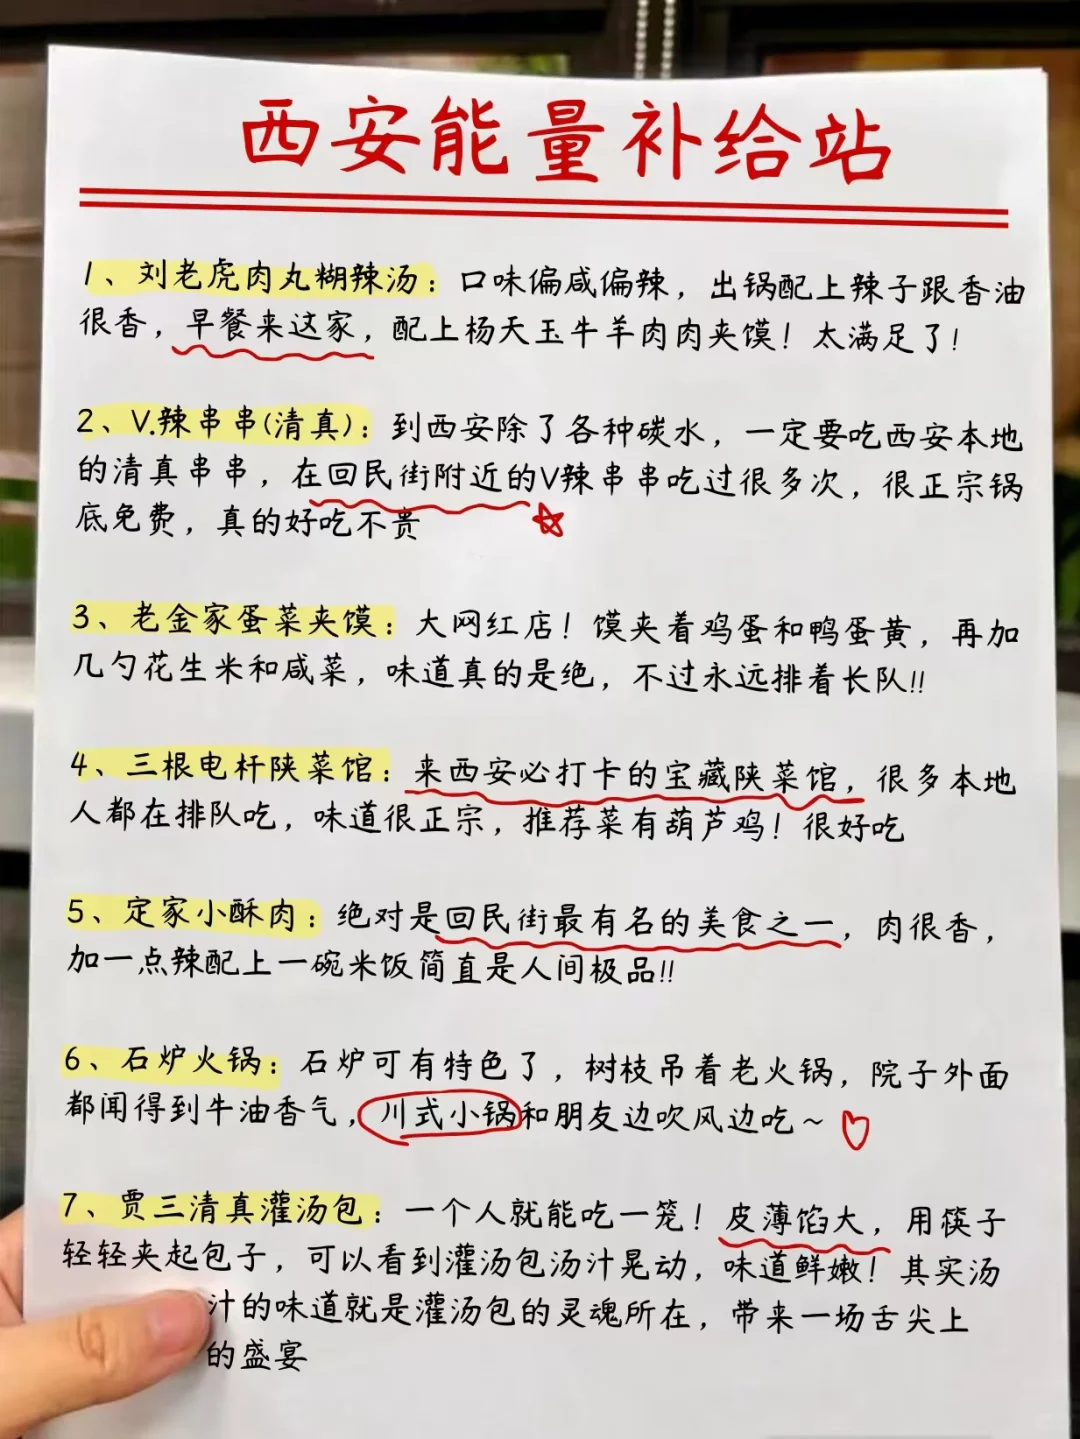 西安能量补给站
1、刘老虎肉丸糊辣汤：口味偏咸偏辣，出锅配上辣子跟香油
很香，早餐来这家，配上杨天玉牛羊肉肉夹馍！太满足了！
2、V.辣串串(清真)：到西安除了各种碳水，一定要吃西安本地
的清真串串，在回民街附近的V辣串串吃过很多次，很正宗锅
底免费，真的好吃不贵
3、老金家蛋菜夹馍：大网红店！馍夹着鸡蛋和鸭蛋黄，再加
几勺花生米和咸菜，味道真的是绝，不过永远排着长队!!
4、三根电杆陕菜馆：来西安必打卡的宝藏陕菜馆，很多本地
人都在排队吃，味道很正宗，推荐菜有葫芦鸡！很好吃
5、定家小酥肉：绝对是回民街最有名的美食之一，肉很香，
加一点辣配上一碗米饭简直是人间极品!!
6、石炉火锅：石炉可有特色了，树枝吊着老火锅，院子外面
都闻得到牛油香气，川式小锅和朋友边吹风边吃~
7、贾三清真灌汤包：一个人就能吃一笼！皮薄馅大，用筷子
轻轻夹起包子，可以看到灌汤包汤汁晃动，味道鲜嫩！其实汤
汁的味道就是灌汤包的灵魂所在，带来一场舌尖上
的盛宴